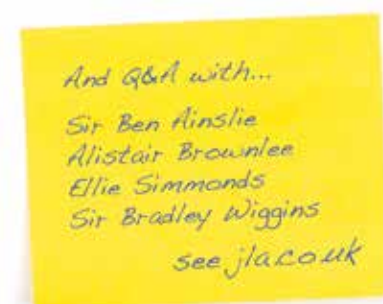 And Q&A with...
Sir Ben Ainslie
Alistair Brownlee
Ellie Simmonds
Sir Bradley Wiggins
see jla.co.uk